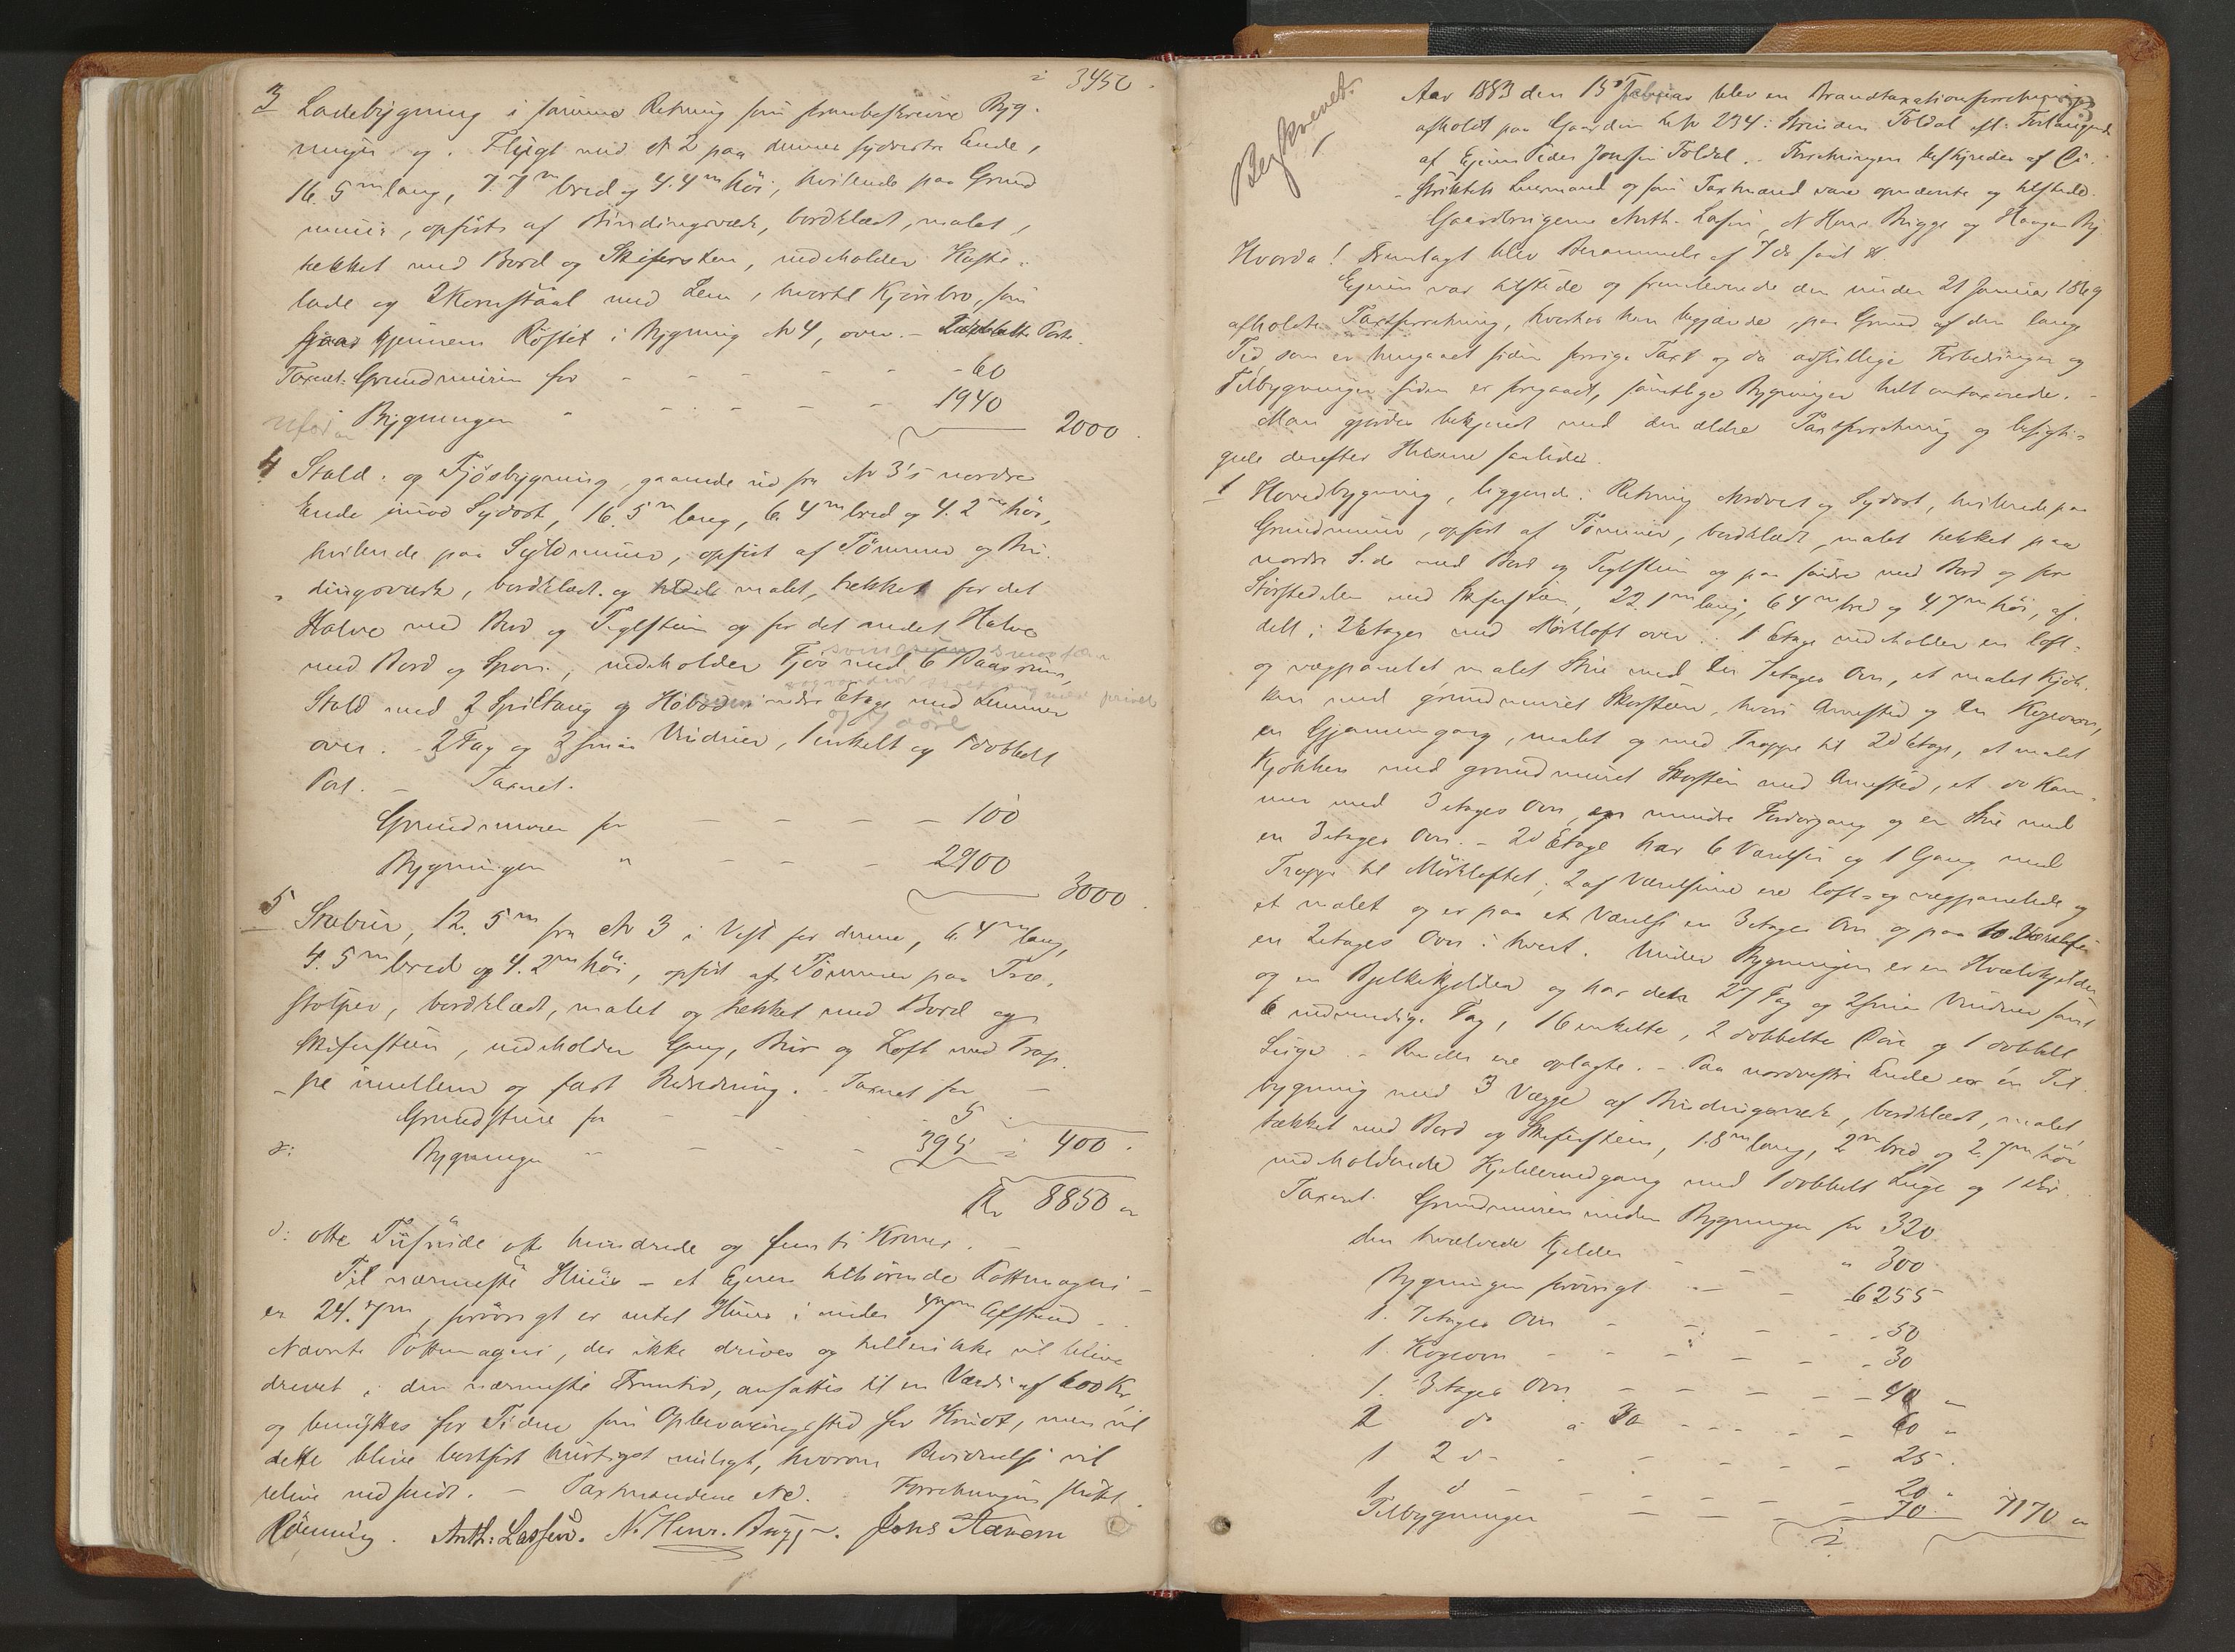 3450
3 Ladebygning i samme Retning som
og i Flugt med N 2 paa dennes sydvestre Ende,
16.5 m lang, 7.7 m bred og 4.4 m høi, hvilende paa Grund
muur, opført af Bindingsværk, bordklædt, malet,
tækket med Bord og Skifersten, indeholder
lade og 2 Kornstaal med Lem, hvortil Kjørebro, som
gaar gjennem Røstet i Bygning N 4, over. –
Taxeret: Grundmuren for – – – – 60
Bygningen " – – – – 1940
2000
4 Stald- og Fjøsbygning, gaaende ud fra N 3's nordre
Ende imod Sydost, 16.5 m lang, 6.4 m bred og 4.2 m høi,
hvilende paa Syldmuur, opført af Tømmer og Bin-
dingsværk, bordklædt og malet, tækket for det
Halve med Bord og Teglsteen og for det andet Halve
med Bord og Spon; indeholder Fjøs med 6 Baasrum,
Stald med 2 Spiltaug og Høbod i nedre Etage med Lemmer
over. 2 Fag og 3 smaa Vinduer, 1 enkelt og 1 dobbelt
Port. – Taxeret.
Grundmuren for – – – – 100
Bygningen " – – – 2900
3000
5 Stabur, 12.5 m fra N 3 i Vest for denne, 6.4 m lang,
4.5 m bred og 4.2 m høi, opført af Tømmer paa Træ-
stolper, bordklædt, malet og tækket med Bord og
Skifersteen, indeholder Gang, Bur og Loft med Trap-
pe imellem og fast Indredning. – Taxeret for
Grundstene for – – – 5
Bygningen " – – – 395 = 400
Kr 8850
o: otte Tusinde otte hundrede og femti Kroner. –
Til nærmeste Huus – et Eieren tilhørende Pottmageri –
er 24.7 m, forøvrigt er intet Huus i under Afstand. –
Nævnte Pottmageri, der ikke drives og heller ikke vil blive
drevet i den nærmeste Fremtid, ansattes til en Værdi af 600 Kr
og benyttes for Tiden som Opbevaringssted for Krudt, men vil
dette blive bortført hurtigst muligt, hvorom Bevidnelse vil
blive indsendt. – Taxmændene Ed. Forretningen sluttet.
Rønning. Anth: Lassen. N. Henr. Bugge. Johs
Aar 1883 den 15 Februar blev en Brandtaxationsforretning
afholdt paa Gaarden N 234 i Strinden Foldal eft. Forlangende
af Eieren Peder Jonsen Foldal. – Forretningen beskjredes af Di-
striktets Lensmand og som Taxtmænd vare opnævnte og tilstede
Gaardbrugerne Anth. Lassen, N Henr Bugge og Haagen By
Hvorda! Fremlagt blev Berammelse af 7 ds
Eieren var tilstede og fremleverede den under 21 Januar 1869
afholdte Taxtforretning, hvorhos han begjærede paa Grund af den lange
Tid som er hengaaet siden forrige Taxt og da adskillige Forbedringer og
Tilbygninger siden er foregaaet, samtlige Bygninger helt omtaxerede. –
Man gjorde bekjendt med den ældre Taxtforretning og besigti-
gede derefter Husene saaledes.
1 Hovedbygning, liggende i Retning Nordvest og Sydost, hvilende paa
Grundmuur, opført af Tømmer, bordklædt, malet tækket paa
nordre Side med Bord og Teglsteen og paa søndre med Bord og for
Størstedelen med Skifersteen, 22.1 m lang, 6.4 m bred og 4.7 m høi, af-
delt i 2 Etager med Mørkloft over. 1 Etage indeholder en loft-
og vægpanelet malet Stue med en 7 etages Ovn, et malet Kjøk-
ken med grundmuret Skorsteen, hvori Arnested og en Kogeovn,
en Gjennemgang, malet og med Trappe til 2d Etage, et malet
Kjøkken med grundmuret Skorsteen med Arnested, et do Kam-
mer med 3 etages Ovn, en mindre Fordørgang og en Stue med
en 3 etages Ovn. – 2d Etage har 6 Værelser og 1 Gang med
Trappe til Mørkloftet; 2 af Værelserne ere loft- og vægpanelede og
et malet og er paa et Værelse en 3 etages Ovn og paa to Værelser
en 2 etages Ovn i hvert. Under Bygningen er en Hvælvkjelder
og en Bjelkekjelder og har den 27 Fag og 2 smaa Vinduer samt
6 indvendige Fag, 16 enkelte, 2 dobbelte Døre og 1 dobbelt
Luge. – – Paa nordvestre Ende er en Til-
bygning med 3 Vægge af Bindingsværk, bordklædt, malet,
tækket med Bord og Skifersteen, 1.8 m lang, 2 m bred og 2.7 m høi
indeholdende Kjeldernedgang med 1 dobbelt Luge og 1 Dør.
Taxeret. Grundmuren under Bygningen for 320
den hvælvede Kjelder " 300
Bygningen forøvrigt – – 6255
1. 7 etages Ovn – – – 50
1. Kogeovn – – – 30
1. 3 etages Ovn – – – 40
2 do a 30 – – – 60
1 2 d – – – 25
1 d – – – 20
Tilbygningen – – – 70 7170